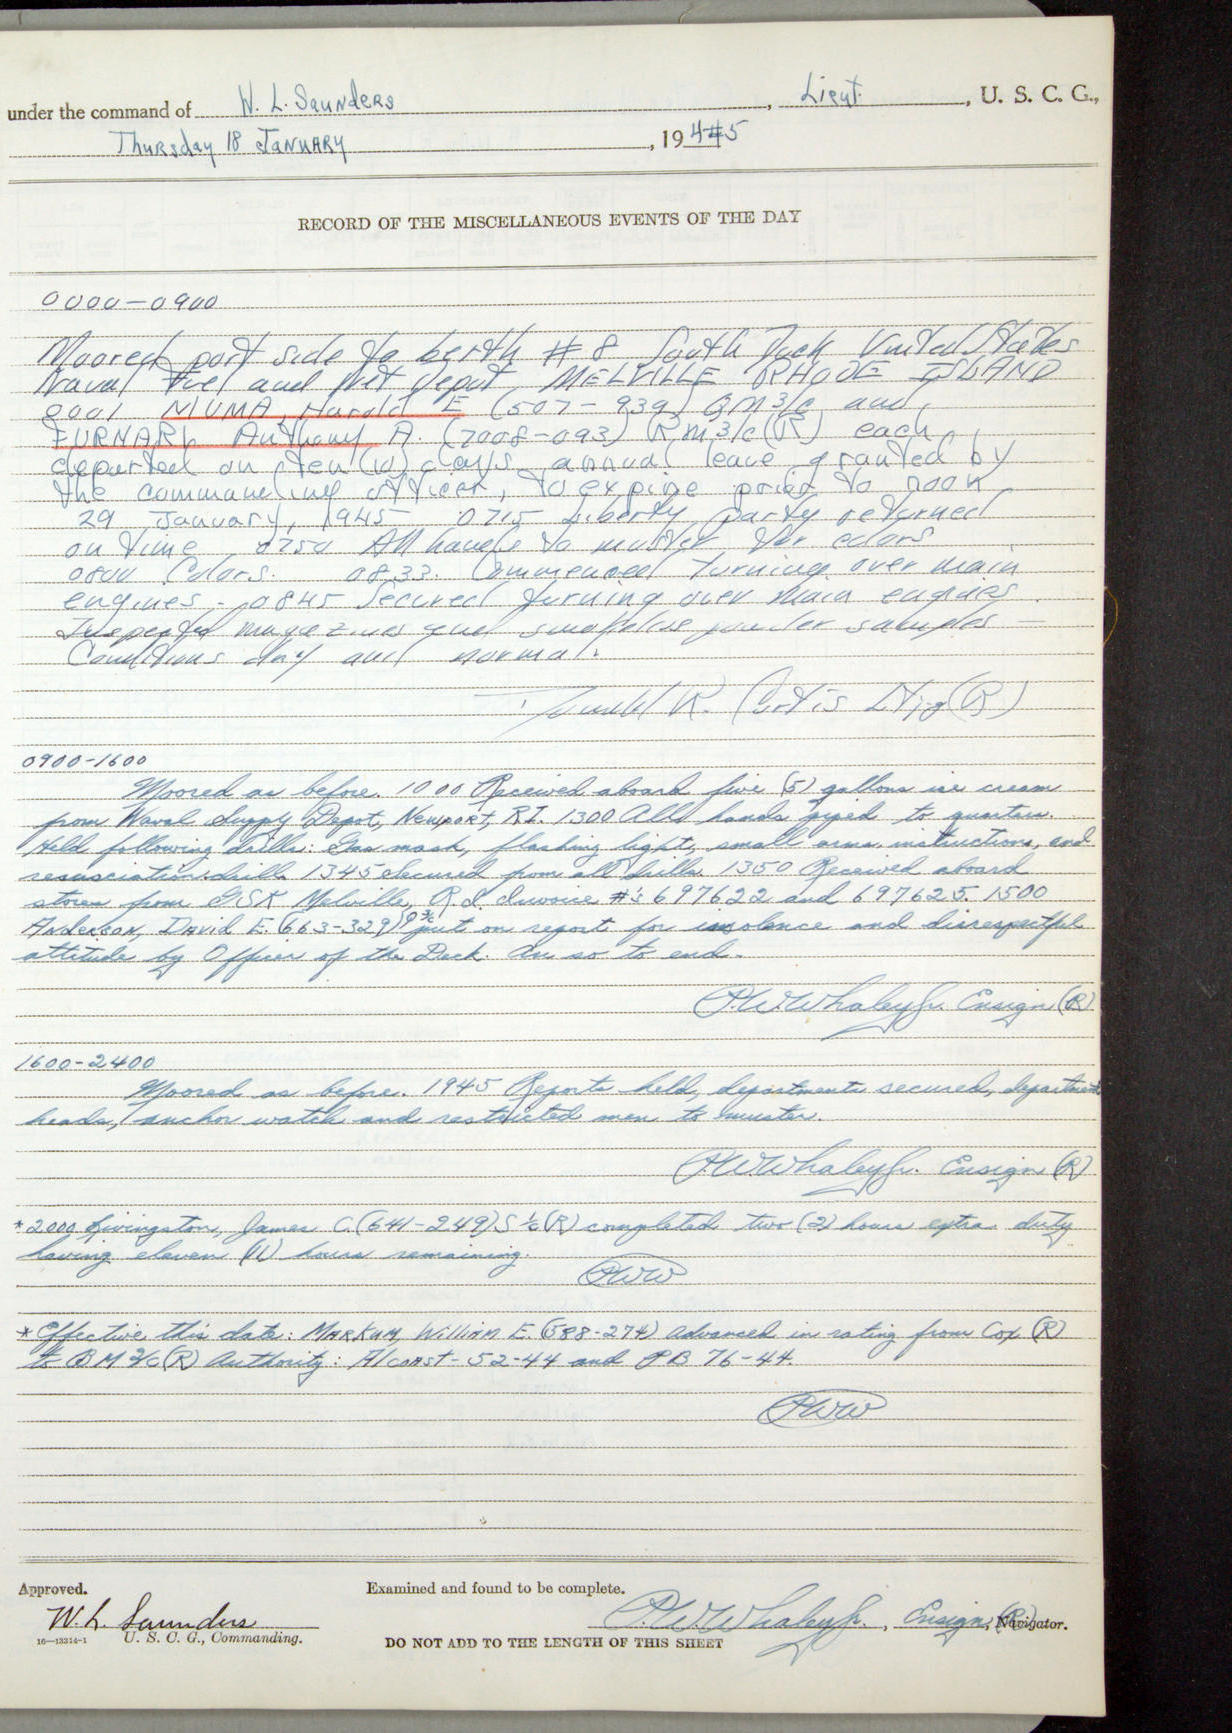 under the command of W. L. Saunders, Lieut., U. S. C. G.,
Thursday 18 January, 1945
RECORD OF THE MISCELLANEOUS EVENTS OF THE DAY
0000-0900
Moored port side to berth #8 South Dock United States
Naval Fuel and Net Depot, MELVILLE RHODE ISLAND
0001 MUMA, Harold E (507-939) GM3/c and
FURNARI, Anthony A. (7008-093) RM3/c(R) each
departed on ten (10) days annual leave granted by
the commanding officer, to expire prior to noon
29 January, 1945 0715 Liberty party returned
on time 0750 All hands to muster for colors
0800 Colors. 0833. Commenced turning over main
engines - 0845 Secured turning over main engines.
Inspected magazines and smokeless powder samples -
Conditions dry and normal.
Donald R. Curtis Ltjg (R)
0900-1600
Moored as before. 1000 Received aboard five (5) gallons ice cream
from Naval Supply Depot, Newport, R.I. 1300 All hands piped to quarters.
Held following drills: Gas mask, flashing light, small arms instructions, and
resusciation drill. 1345 Secured from all drills. 1350 Received aboard
stores from GSK Melville, R.I. Invoice #'s 697622 and 697625. 1500
Anderson, David E. (663-329) put on report for insolence and disrespectful
attitude by Officer of the Deck. An so to end.
P.W. Whaley Jr. Ensign (R)
1600-2400
Moored as before. 1945 Reports held, departments secured, department
heads, anchor watch and restricted men to muster.
P.W. Whaley Jr. Ensign (R)
*2000 Livingston, James C. (641-249) S 1/c (R) completed two (2) hours extra duty
having eleven (11) hours remaining.
PWW
*Effective this date: Markum, William E. (588-274) advanced in rating from Cox (R)
to BM 2/c (R) Authority: Alcoast-52-44 and PB 76-44.
PWW
Approved.
Examined and found to be complete.
W. L. Saunders
P.W. Whaley Jr., Ensign, (R) Navigator.
16—13314-1 U. S. C. G., Commanding.
DO NOT ADD TO THE LENGTH OF THIS SHEET